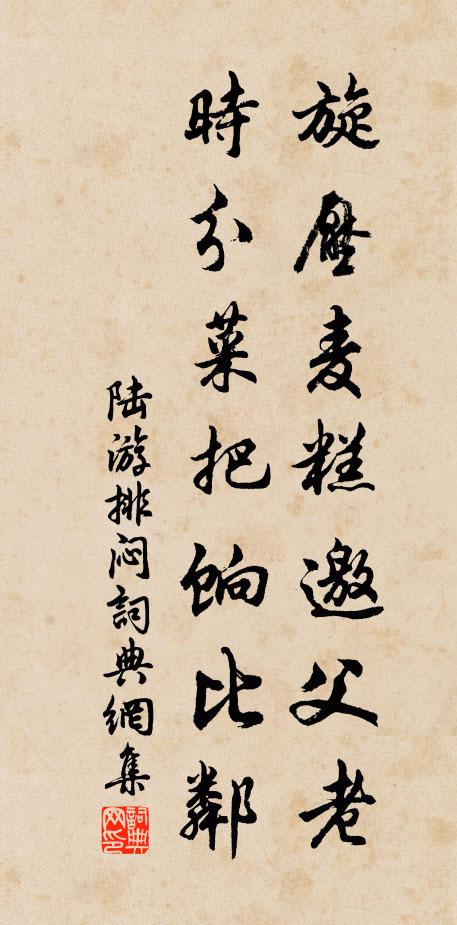 旋壓麦糕邀父老
時分菜把餉比鄰
陆游排闷詞典網集
詞典网印